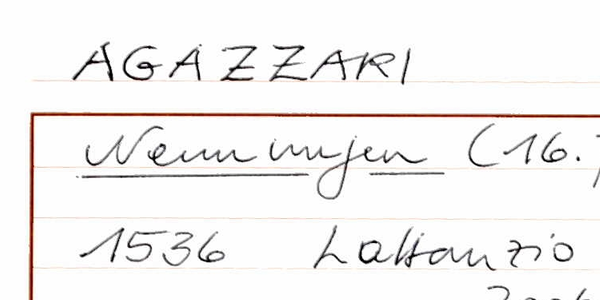 AGAZZARI
Nennungen (16.
1536 Lattanzio